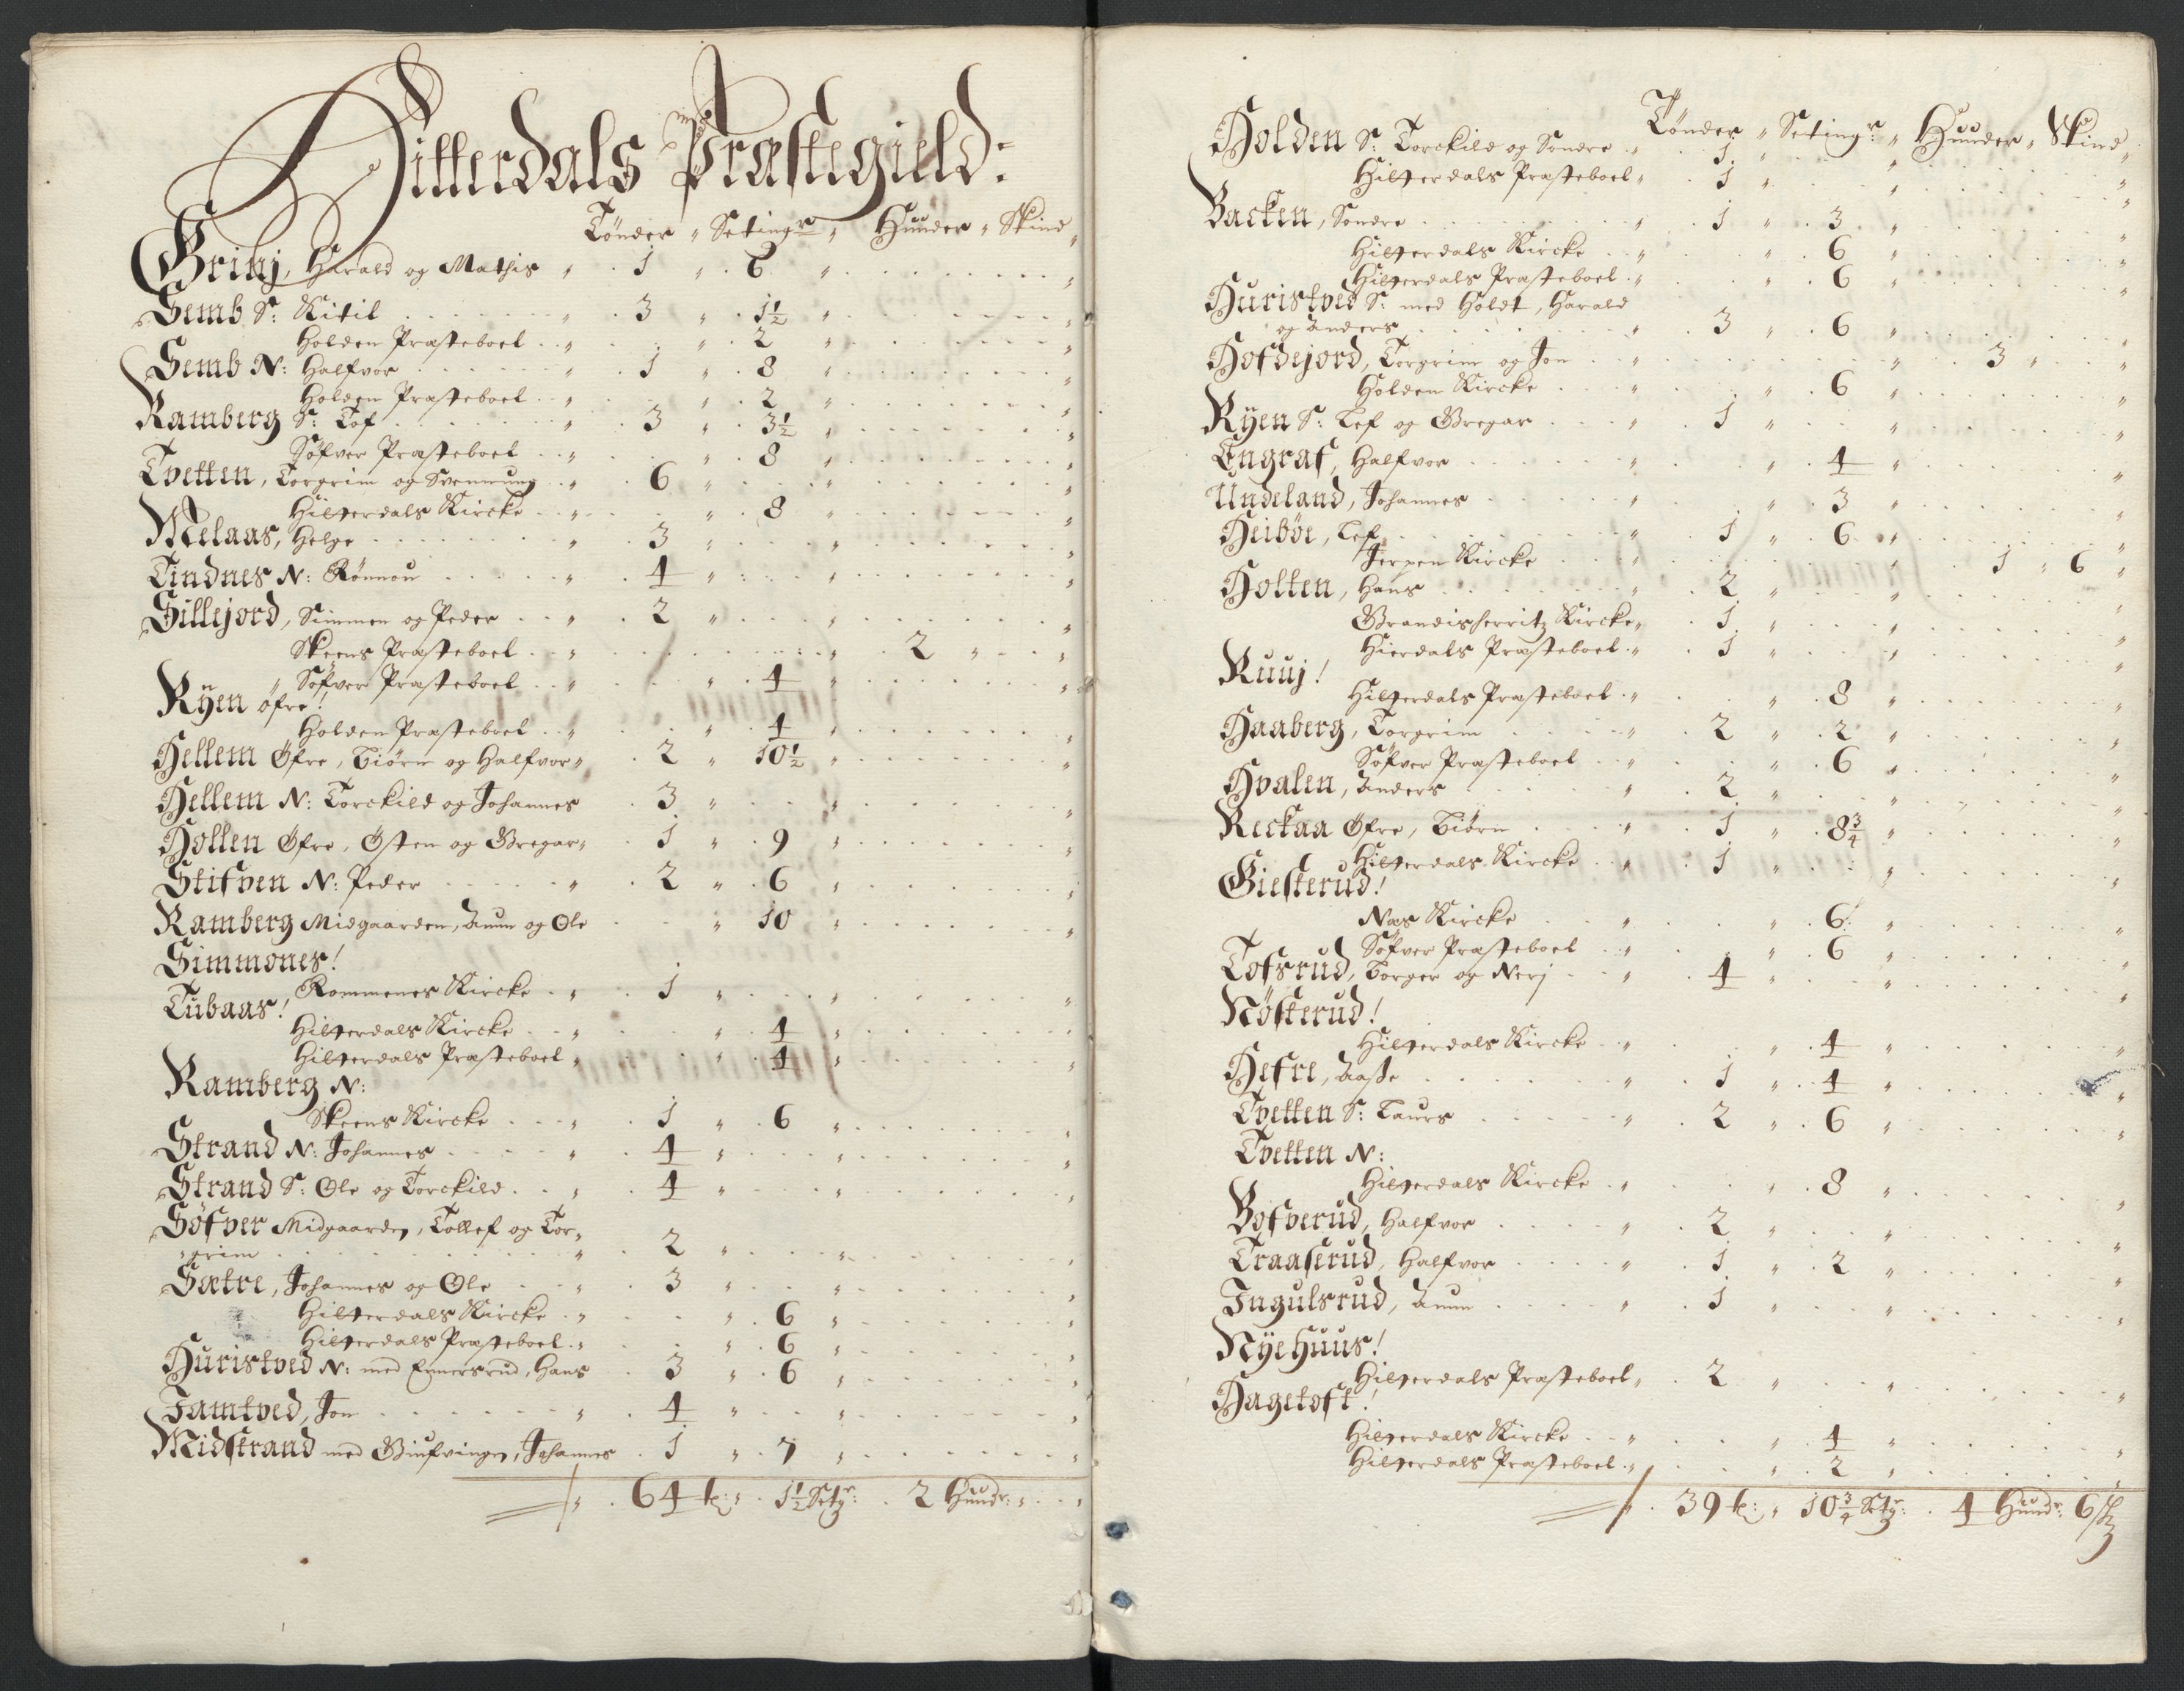 Hitterdals Præstegield:
Tönder " Setingr " Hunder " Skind "
Grinj, Harald og Mathis " 1 " 6 "
Semb S: Kitil " 3 " 1½ "
Holden Præsteboel " " 2 "
Semb N: Halfvor " 1 " 8 "
Holden Præsteboel " " 2 "
Ramberg S: Tof " 3 " 3½ "
Söfver Præsteboel " " 8 "
Tvetten, Torgrim og Svennung " 6 " "
Hitterdals Kircke " " 8 "
Melaas, Helge " 3 " "
Tindnes N: Rönnou " 4 " "
Sillejord, Simmen og Peder " 2 " "
Skeens Præsteboel " " 2 "
" Söfver Præsteboel " " 4 "
Rÿen öfre!
Holden Præsteboel " " 4 "
Hellem Øfre, Biörn og Halfvor " 2 " 10½ "
Hellem N: Torckild og Johannes 3 " "
Hollen Øfre, Østen og Gregar " 1 " 9 "
Stifven N: Peder " 2 " 6 "
Ramberg Midgaarden, Anun og Ole " 10 "
Simmones!
Rommenes Kircke " 1 " "
Tubaas!
Hitterdals Kircke " " 4 "
Hitterdals Præsteboel " " 4 "
Ramberg N:
Skeens Kircke " 1 " 6 "
Strand N: Johannes " 4 " "
Strand S: Ole og Torckild " 4 " "
Söfver Midgaarden, Tollef og Tor"
"grim " 2 " "
Sætre, Johannes og Ole " 3 " "
Hitterdals Kircke " " 6 "
Hitterdals Præsteboel " " 6 "
Huristved N: med Enmersrud, Hans 3 " 6 "
Jamtved, Jon " 4 " "
Midstrand med Giufvingen, Johannes 1 " 7 "
" 64 t: " 1½ Setgr: 2 Hundr: "
Tönder " Setingr: " Hunder " Skind "
Holden S: Torckild og Sondre " 1 " "
Hitterdals Præsteboel " 1 " "
Backen, Sondre " 1 " 3 "
Hitterdals Kircke " " 6 "
Hitterdals Præsteboel " " 6 "
Huristved S: med Holdt, Harald
og Anders " 3 " 6 "
Hofdejord, Torgrim og Jon " " 3 "
Holden Kircke " " 6 "
Rÿen S: Lef og Gregar " 1 " "
Engraf, Halfvor " " 4 "
Undeland, Johannes " " 3 "
Heiböe, Lef " 1 " 6 "
Jerpen Kircke " " 1 " 6 "
Holten, Hans " 2 " "
Brandisherritz Kircke " 1 " "
Hierdals Præsteboel " 1 " "
Ruuj!
Hitterdals Præsteboel " " 8 "
Haaberg, Torgrim " 2 " 2 "
Söfver Præsteboel " " 6 "
Hvalen, Anders " 2 " "
Reckaa Øfre, Biörn " 1 " 8¾ "
Hitterdals Kircke " 1 " "
Giesterud!
Næs Kircke " " 6 "
Söfver Præsteboel " " 6 "
Tofsrud, Borger og Nerj " 4 " "
Nösterud!
Hitterdals Kircke " " 4 "
Hefre, Aasse " 1 " 4 "
Tvetten S: Laurs " 2 " 6 "
Tvetten N:
Hitterdals Kircke " " 8 "
Bofverud, Halfvor " 2 " "
Traaserud, Halfvor " 1 " 2 "
Ingulsrud, Anun " 1 " "
Nÿehuus!
Hitterdals Præsteboel " 2 " "
Hagetoft!
Hitterdals Kircke " " 4 "
Hitterdals Præsteboel " " 2 "
" 39 t: " 10¾ Setgr: 4 Hundr: 6 sk